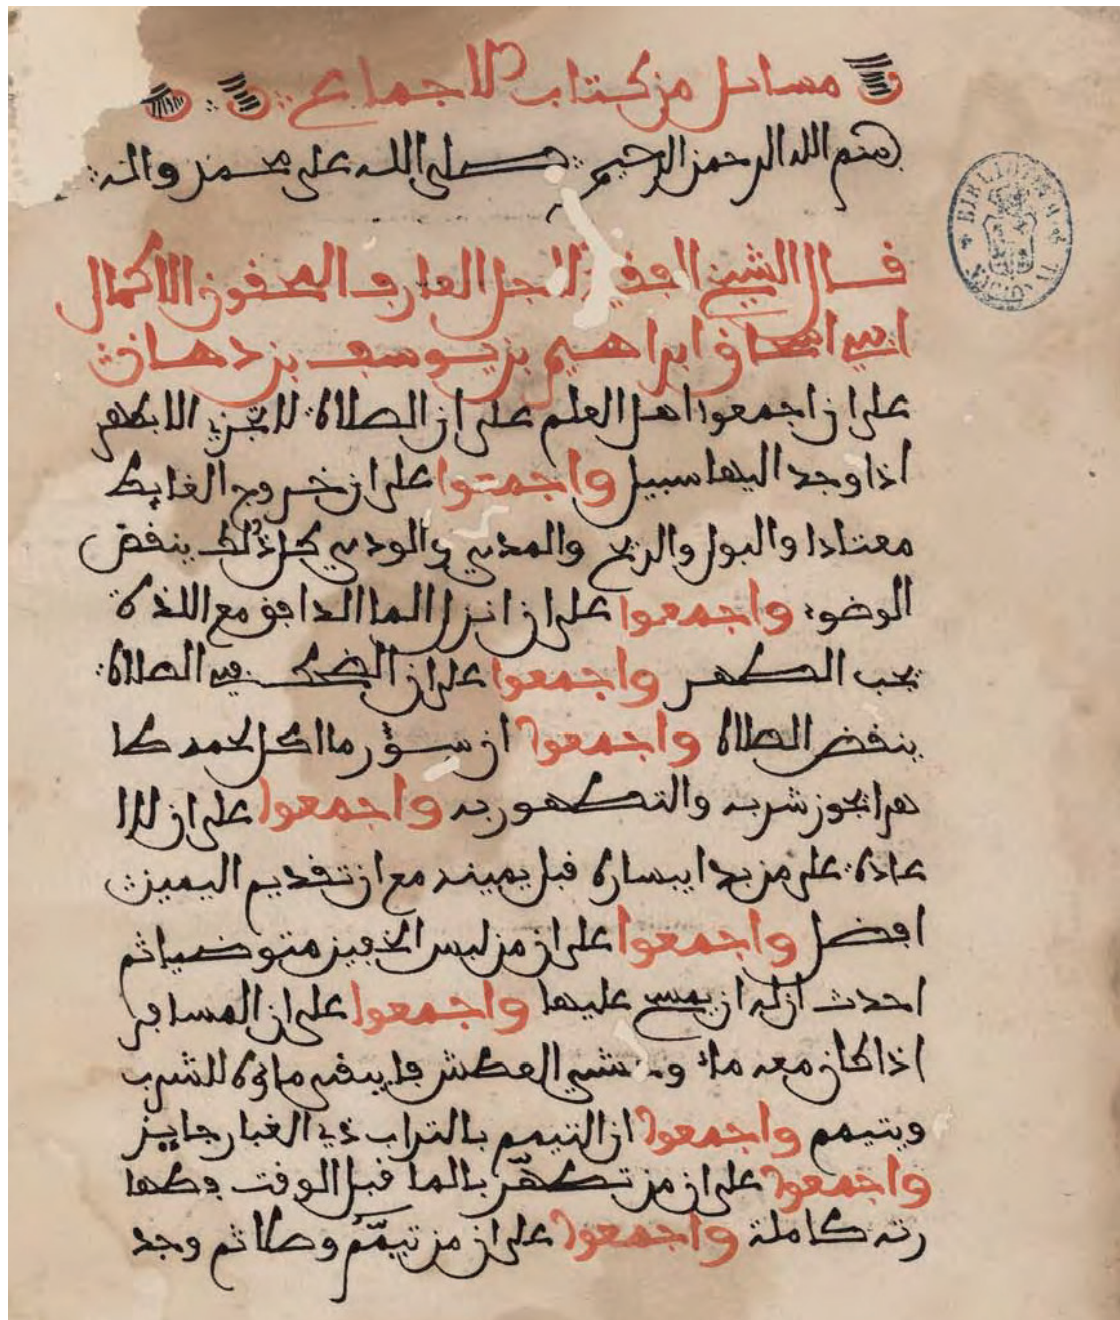 مسائل من كتاب الاجماع
بسم الله الرحمن الرحيم صلى الله على محمد واله
قال الشيخ الفقيه الاجل العارف المحقق الاكمال
ابي اسحاق ابراهيم بن يوسف بن دهاق
على ان اجمعوا اهل العلم على ان الصلاة لا تجزي الا بطهر
اذا وجد اليها سبيل واجمعوا على ان خروج الغايط
معتادا والبول والريح والمدي والودي كل ذلك ينقض
الوضوء واجمعوا على ان انزل الما الدافق مع اللذة
يجب الطهر واجمعوا على ان الضحك في الصلاة
ينقض الصلاة واجمعوا ان سؤر ما اكل لحمه طا
هرا يجوز شربه والتطهور به واجمعوا على ان لا ا
عادة على من بدا بيساره قبل يمينه مع ان تقديم اليمين
افضل واجمعوا على ان من لبس الخفين متوضيا ثم
احدث ان له ان يمسح عليها واجمعوا على ان المسافر
اذا كان معه ماء وخشي العطش فليبقي ماؤه للشرب
ويتيمم واجمعوا ان التيمم بالتراب ذي الغبار جايز
واجمعوا على ان من تطهّر بالما قبل الوقت فطها
رته كاملة واجمعوا على ان من تيمّم وصلا ثم وجد
BIBLIOTECA NACIONAL